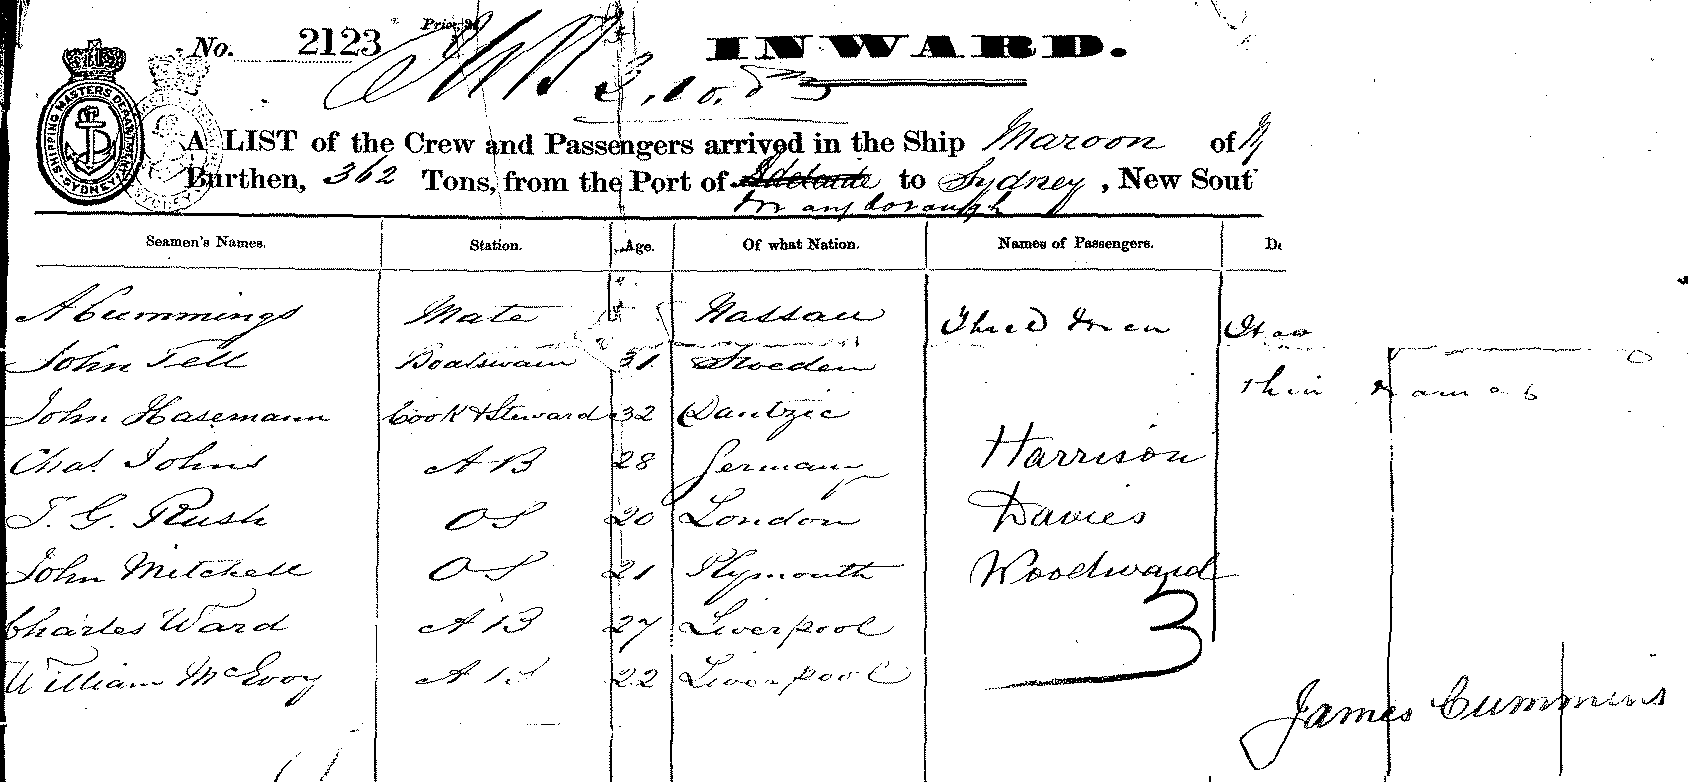 No. 2123
INWARD.
3.10.83
A LIST of the Crew and Passengers arrived in the Ship Maroon of
Burthen, 362 Tons, from the Port of Adelaide to Sydney, New Sout
Maryborough
Seamen's Names. Station. Age. Of what Nation. Names of Passengers.
A Cummings Mate Nassau Three Men
John Tell Boatswain 31 Sweden
John Hasemann Cook & Steward 32 Dantzic
Chas. Johns AB 28 Germany Harrison
T. G. Rush OS 20 London Davies
John Mitchell OS 21 Plymouth Woodward
Charles Ward AB 27 Liverpool 3
William McEvoy AB 22 Liverpool
James Cummins
SHIPPING MASTERS DEPARTMENT SYDNEY